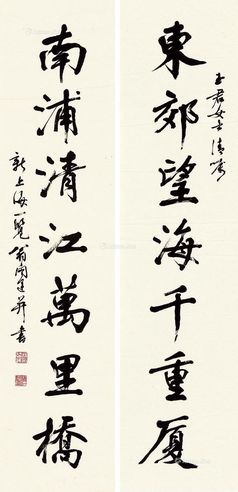 玉君女士清嘱
東郊望海千重厦
南浦清江萬里橋
新上海一覽翁闿運并書